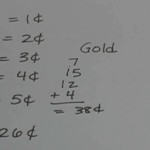 = 1¢
= 2¢
= 3¢
= 4¢
= 5¢
26¢
Gold
7
15
12
+ 4
= 38¢